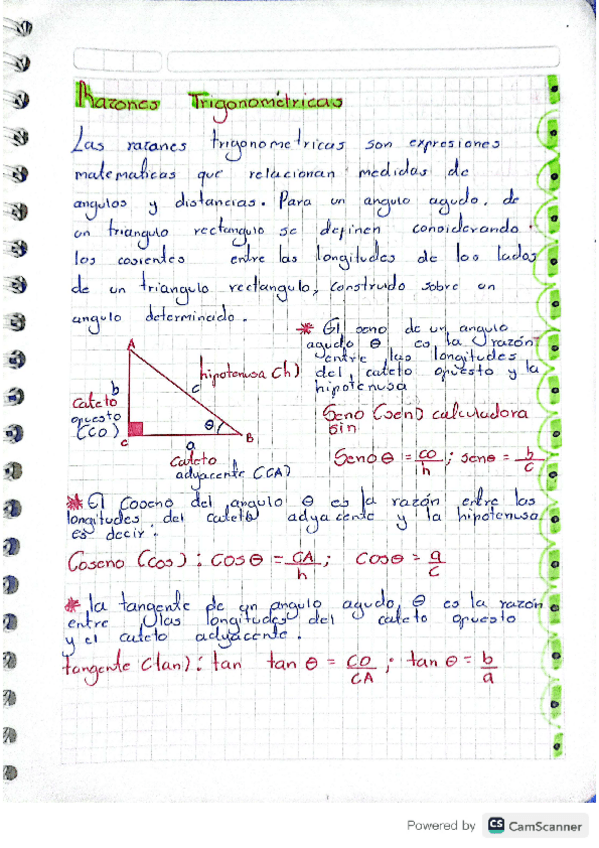 Razones Trigonométricas
Las razones trigonometricas son expresiones
matematicas que relacionan medidas de
angulos y distancias. Para un angulo agudo, de
un triangulo rectangulo se definen considerando
los cosientes entre las longitudes de los lados
de un triangulo rectangulo, construido sobre un
angulo determinado.
A
b
cateto
opuesto
(CO)
C
hipotenusa (h)
c
θ
B
a
cateto
adyacente (CA)
* El seno de un angulo
agudo θ es la razón
entre las longitudes
del cateto opuesto y la
hipotenusa
Seno (sen) calculadora
sin
Seno θ = co/h ; senθ = b/c
* El Coseno del angulo θ es la razón entre las
longitudes del cateto adyacente y la hipotenusa
es decir:
Coseno (cos): Cos θ = CA/h ; Cosθ = a/c
* la tangente de un angulo agudo θ es la razón
entre las longitudes del cateto opuesto
y el cateto adyacente.
tangente (tan): tan tan θ = CO/CA ; tan θ = b/a
Powered by CS CamScanner